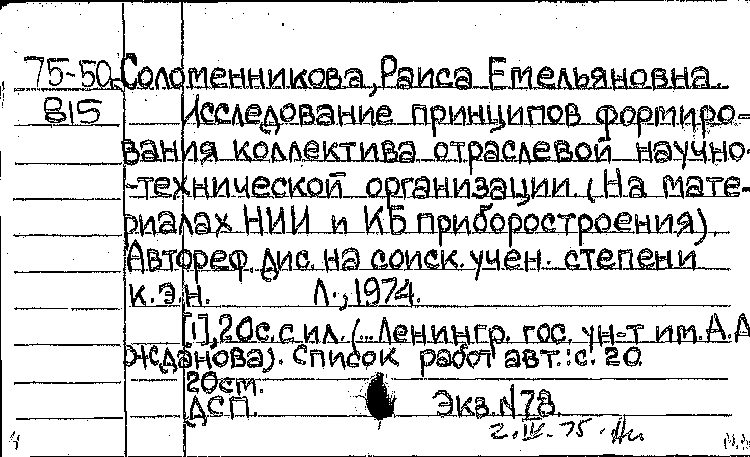 75-50 Соломенникова, Раиса Емельяновна.
815 Исследование принципов формиро-
вания коллектива отраслевой научно-
-технической организации. (На мате-
риалах НИИ и КБ приборостроения).
Автореф. дис. на соиск. учен. степени
к.э.н. Л., 1974.
[1], 20с. с ил. (... Ленингр. гос. ун-т им. А.А
Жданова). Список работ авт.: с. 20
20см.
ДСП. Экз. N 78.
2.IV.75.